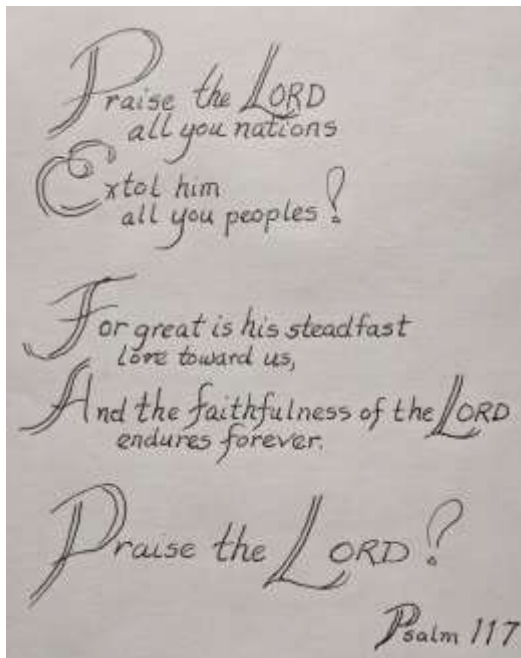 Praise the LORD
all you nations
Extol him
all you peoples!
For great is his steadfast
love toward us,
And the faithfulness of the LORD
endures forever.
Praise the LORD!
Psalm 117